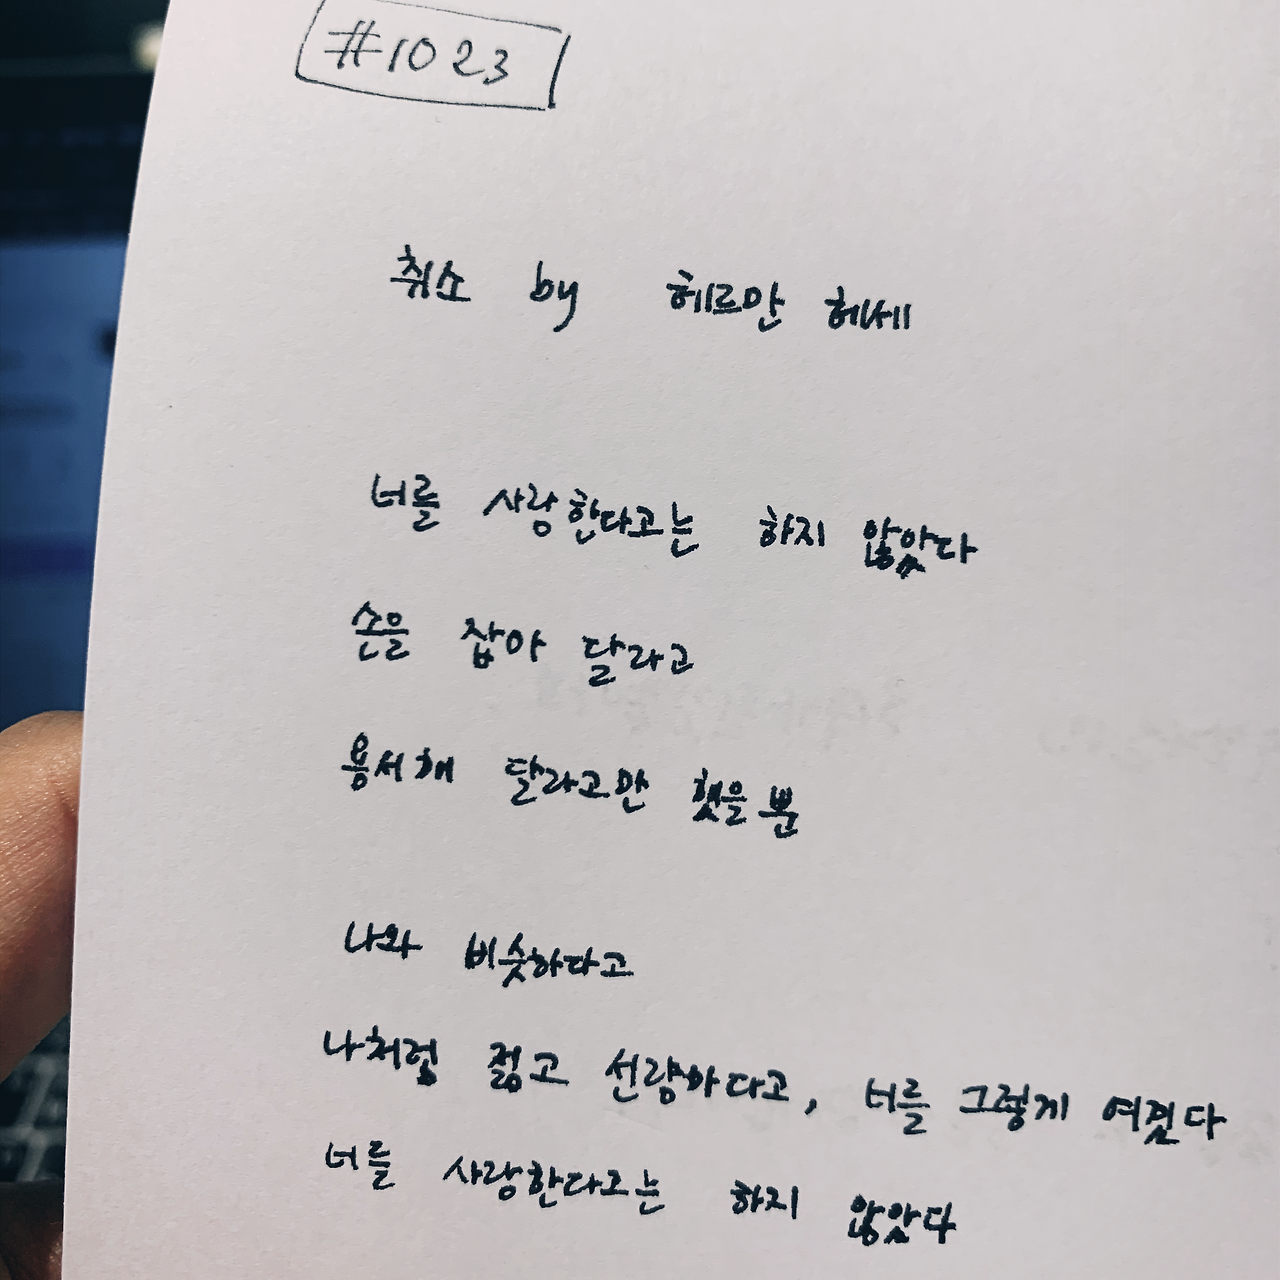 #1023
취소 by 헤르만 헤세
너를 사랑한다고는 하지 않았다
손을 잡아 달라고
용서해 달라고만 했을 뿐
나와 비슷하다고
나처럼 젊고 선량하다고, 너를 그렇게 여겼다
너를 사랑한다고는 하지 않았다